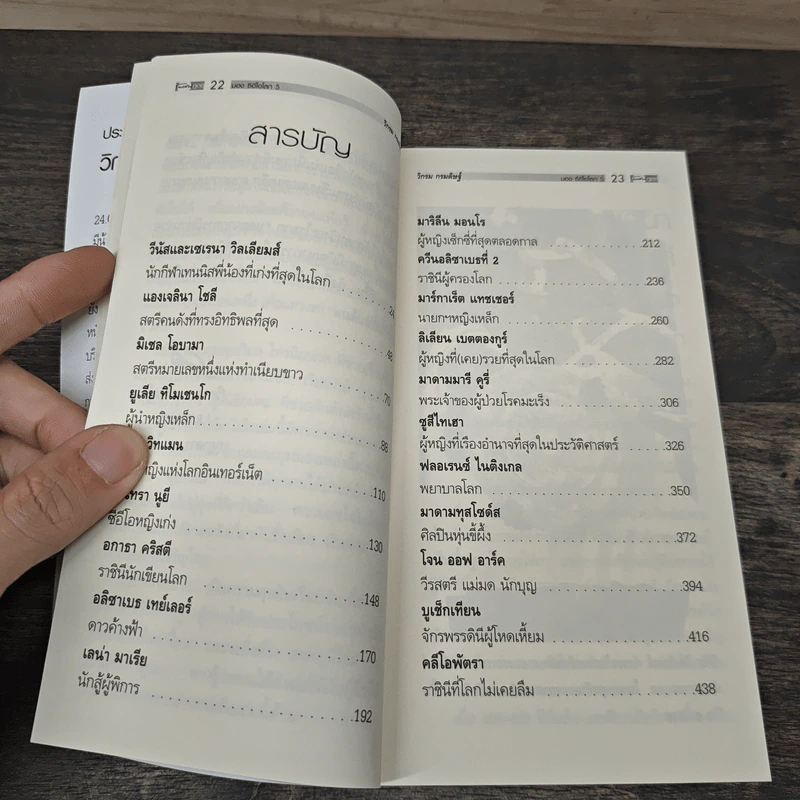 ประ
วิก
24.
มีน้
22 มอง ซีอีโอโลก 5
สารบัญ
วีนัสและเซเรนา วิลเลียมส์
นักกีฬาเทนนิสพี่น้องที่เก่งที่สุดในโลก
แองเจลินา โซลี
สตรีคนดังที่ทรงอิทธิพลที่สุด 48
มิเชล โอบามา
สตรีหมายเลขหนึ่งแห่งทำเนียบขาว 70
ยูเลีย ทิโมเชนโก
ผู้นำหญิงเหล็ก 88
วิทแมน
หญิงแห่งโลกอินเทอร์เน็ต 110
ทรา นูยี
ซีอีโอหญิงเก่ง 130
อกาธา คริสตี
ราชินีนักเขียนโลก 148
อลิซาเบธ เทย์เลอร์
ดาวค้างฟ้า 170
เลน่า มาเรีย
นักสู้ผู้พิการ 192
วิกรม กรมดิษฐ์ มอง ซีอีโอโลก 5 23
มาริลีน มอนโร
ผู้หญิงเซ็กซี่ที่สุดตลอดกาล 212
ควีนอลิซาเบธที่ 2
ราชินีผู้ครองโลก 236
มาร์กาเร็ต แทชเชอร์
นายกฯหญิงเหล็ก 260
ลิเลียน เบตตองกูร์
ผู้หญิงที่(เคย)รวยที่สุดในโลก 282
มาดามมารี คูรี่
พระเจ้าของผู้ป่วยโรคมะเร็ง 306
ซูสีไทเฮา
ผู้หญิงที่เรืองอำนาจที่สุดในประวัติศาสตร์ 326
ฟลอเรนซ์ ไนติงเกล
พยาบาลโลก 350
มาดามทุสโซด์ส
ศิลปินหุ่นขี้ผึ้ง 372
โจน ออฟ อาร์ค
วีรสตรี แม่มด นักบุญ 394
บูเช็กเทียน
จักรพรรดินีผู้โหดเหี้ยม 416
คลีโอพัตรา
ราชินีที่โลกไม่เคยลืม 438